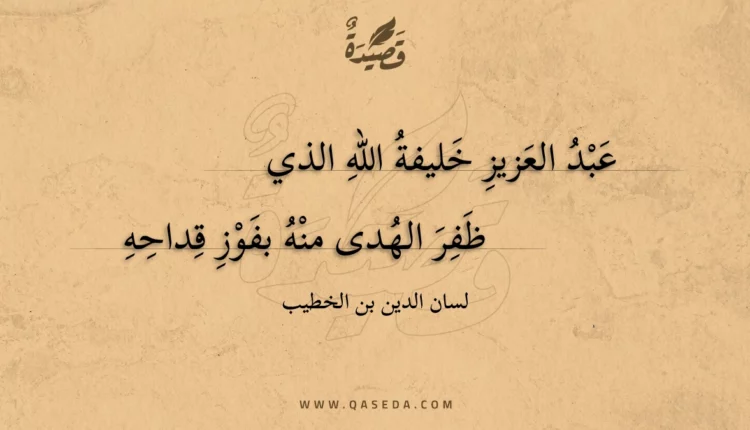 قَصِيْدَةٌ
عَبْدُ العَزيزِ خَليفةُ اللهِ الذي
ظَفِرَ الهُدى منْهُ بفَوْزِ قِداحِهِ
لسان الدين بن الخطيب
WWW.QASEDA.COM